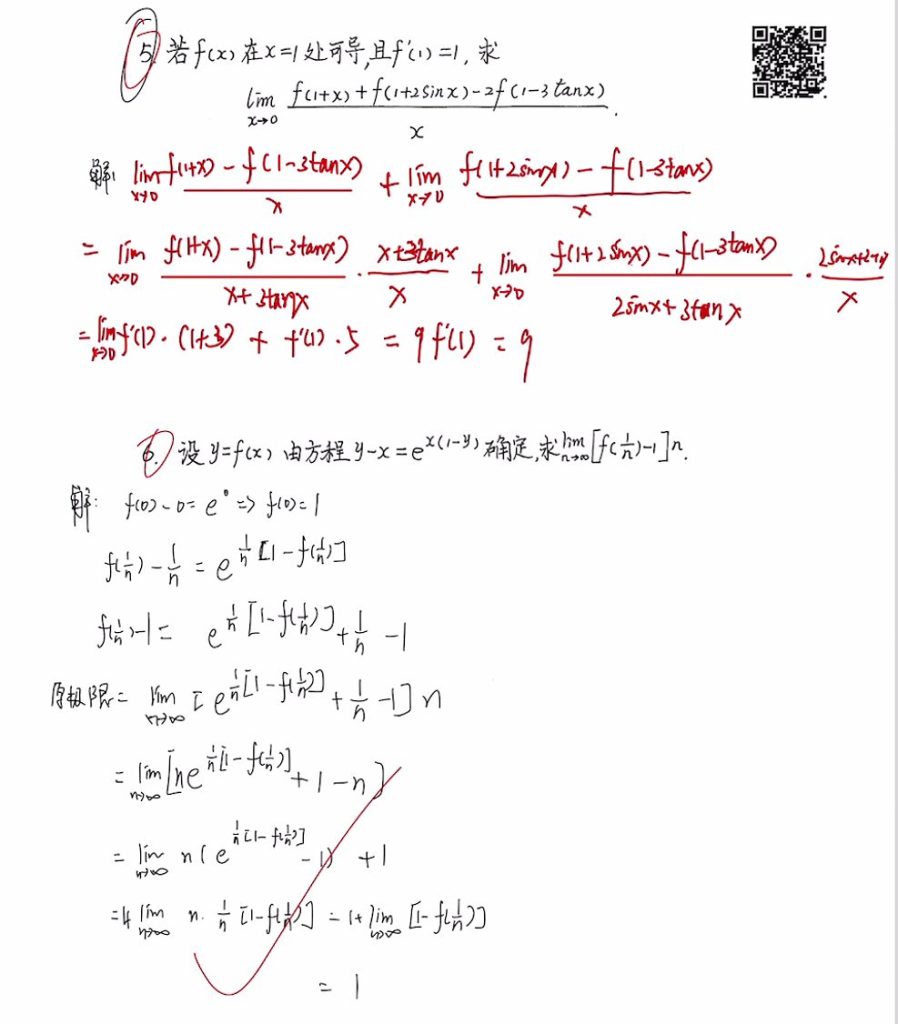 5. 若 f(x) 在 x=1 处可导,且 f'(1)=1, 求
lim x→0 (f(1+x)+f(1+2sinx)-2f(1-3tanx))/x.
解: lim x→0 (f(1+x)-f(1-3tanx))/x + lim x→0 (f(1+2sinx)-f(1-3tanx))/x
= lim x→0 (f(1+x)-f(1-3tanx))/(x+3tanx) · (x+3tanx)/x + lim x→0 (f(1+2sinx)-f(1-3tanx))/(2sinx+3tanx) · /x
= lim x→0 f'(1)·(1+3) + f'(1)·5 = 9f'(1) = 9
6. 设 y=f(x) 由方程 y-x=e^{x(1-y)} 确定,求 lim n→∞ [f(1/n)-1]n.
解: f(0)-0=e^0 => f(0)=1
f(1/n)-1/n = e^{1/n[1-f(1/n)]}
f(1/n)-1 = e^{1/n[1-f(1/n)]}+1/n-1
原极限= lim n→∞ [e^{1/n[1-f(1/n)]}+1/n-1]n
= lim n→∞ [ne^{1/n[1-f(1/n)]}+1-n]
= lim n→∞ n(e^{1/n[1-f(1/n)]}-1)+1
= lim n→∞ n·1/n[1-f(1/n)] = 1+lim n→∞ [1-f(1/n)]
= 1